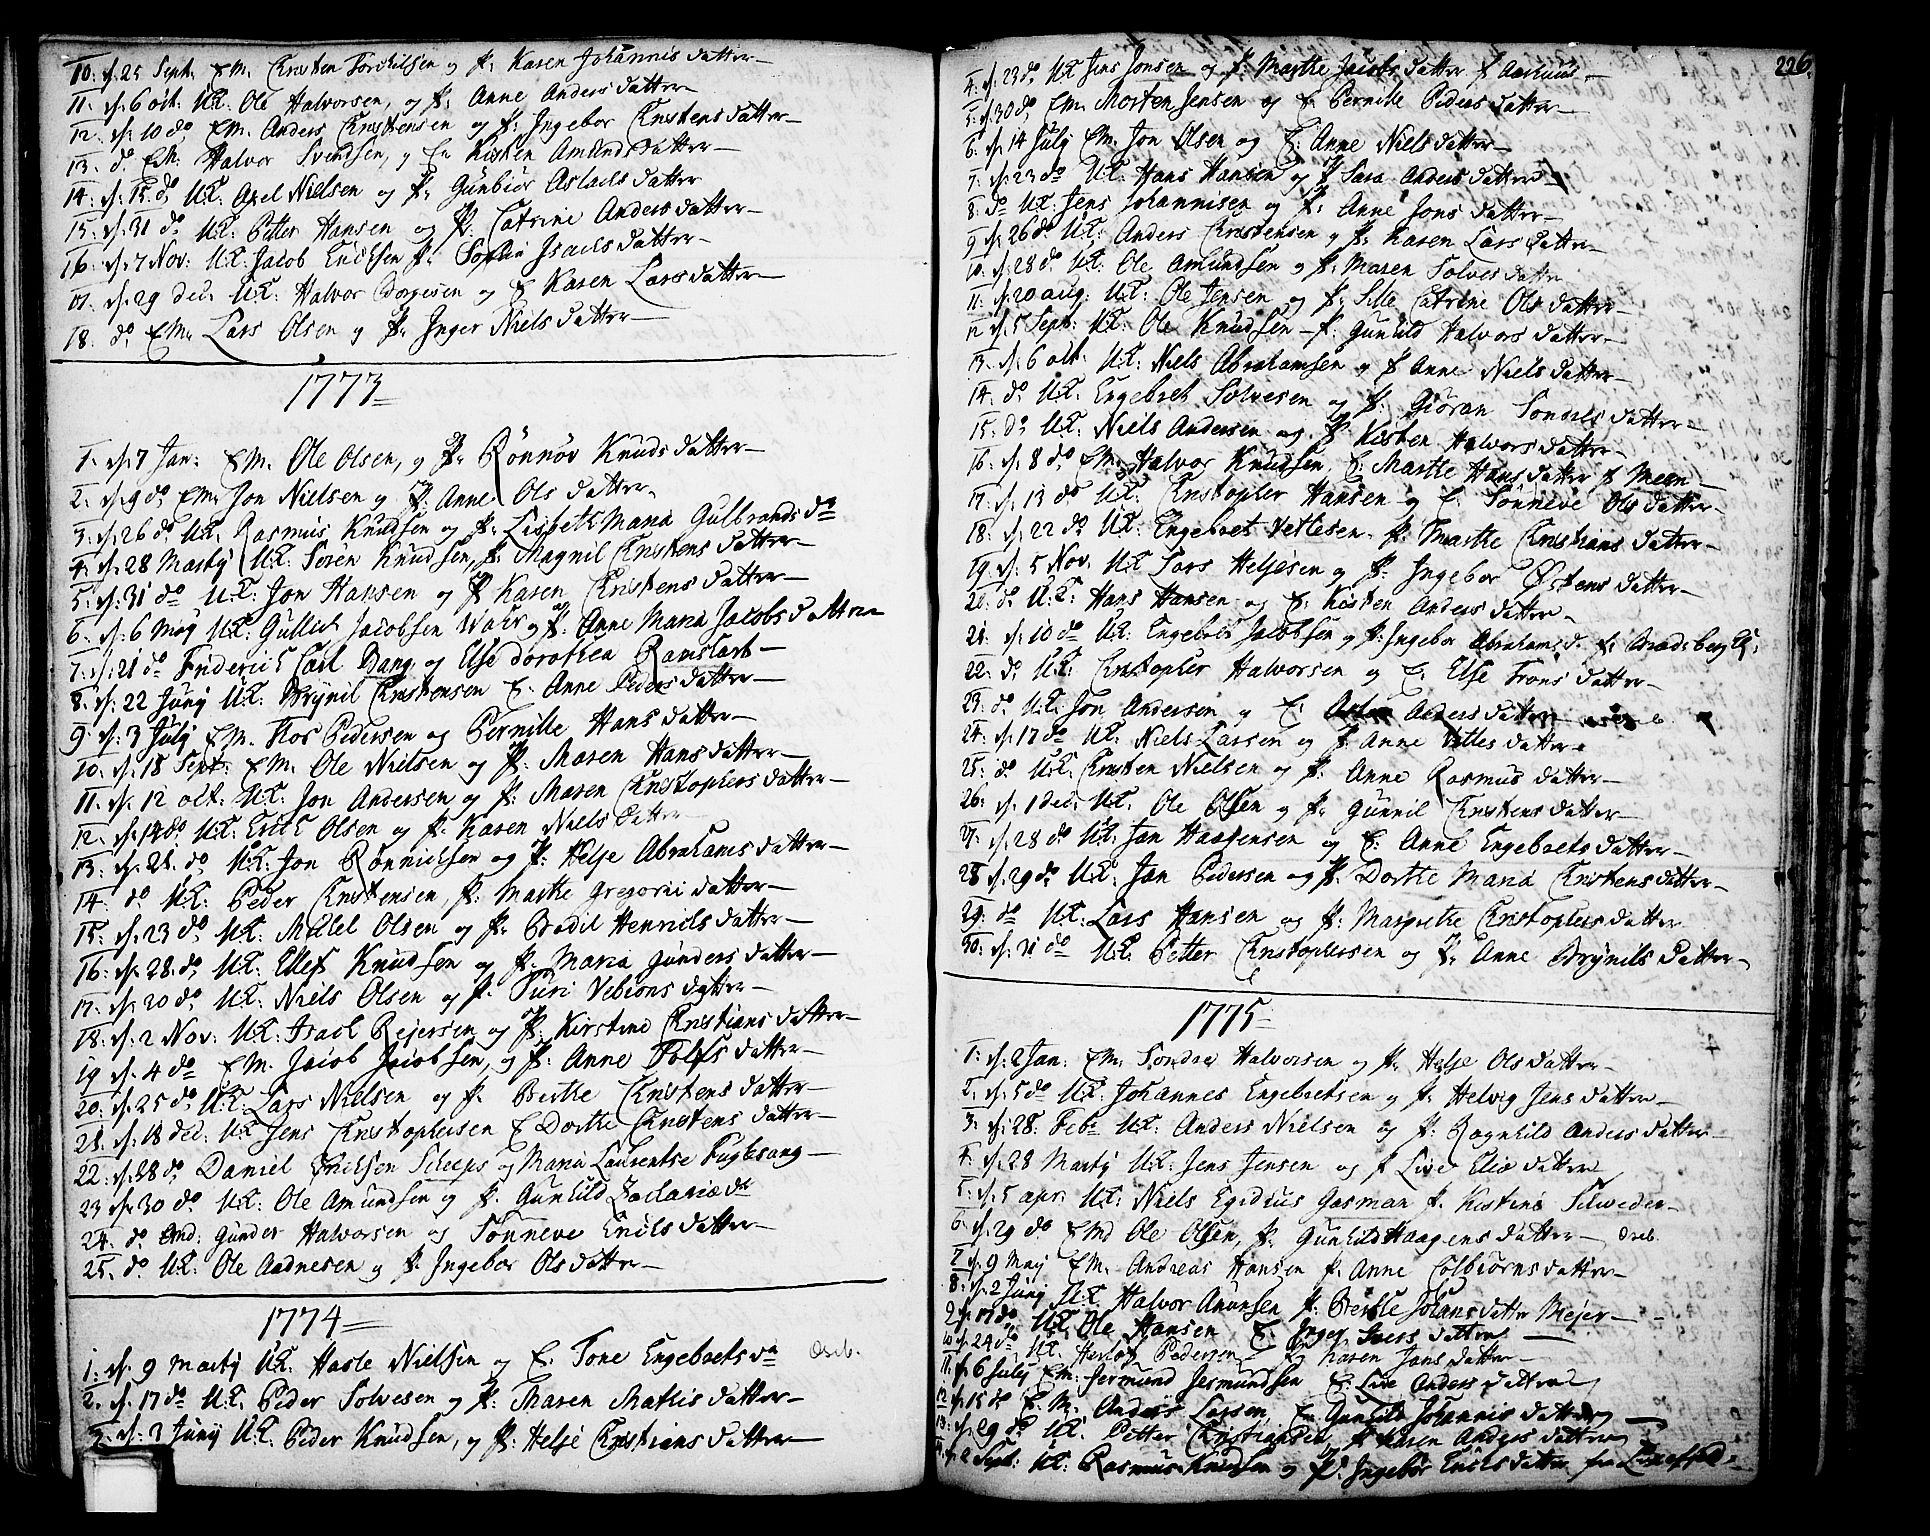 10. d. 25 Sept. EM. Christen Torchilsen og P. Karen Johannis datter
11. d. 6 oct. UK. Ole Halvorsen, og P. Anne Anders datter
12. d. 10 do EM. Anders Christensen og P. Ingebor Christens datter
13. do EM. Halvor Svendsen, og En Kirsten Amunds datter
14. d. 15. do UK. Axel Nielsen og P. Gunbior Aslachs datter
15. d. 31 do UK. Petter Hansen og P. Catrine Anders datter
16. d. 7 Nov. UK. Jacob Erichsen P. Sophia Isachs datter
17. d. 29 dec. UK. Halvor Borgesen og E Karen Lars datter
18. do EM. Lars Olsen og P. Inger Niels datter
1773
1. d. 7 Jan. EM. Ole Olsen, og P. Rönnöv Knuds datter
2. d. 9 do EM. Jon Nielsen og P. Anne Ols datter
3. d. 26 do UK. Rasmus Knudsen og P. Lisbeth Maria Gulbrands dr
4. d. 28 Martj UK. Sören Knudsen, P. Magnil Christens datter
5. d. 31 do UK. Jon Hansen og P. Karen Christens datter
6. d. 6 May UK. Gullich Jacobsen Wahr og P. Anne Maria Jacobs datter
7. d. 21 do Friderich Carl Bang og Else Dorothea Ramslart
8. d. 22 Junij UK. Brynil Christensen E. Anne Peders datter
9. d. 3 Julj EM. Klos Pedersen og Pernille Hans datter
10. d. 18 Sept. EM. Ole Nielsen og P. Maren Hans datter
11. d. 12 oct. UK. Jon Andersen og P. Maren Christophers datter
12. d. 14 do UK. Erich Olsen og P. Karen Niels datter
13. d. 21. do UK. Jon Rönnichsen og P. Helje Abrahams datter
14. do UK. Peder Christensen, P. Marthe Gregorii datter
15. d. 23 do UK. Michel Olsen og P. Bodil Henrichs datter
16. d. 28. do UK. Ellef Knudsen og P. Maria Gunders datter
17. d. 20 do UK. Niels Olsen og P. Turi Vebions datter
18. d. 2 Nov. UK. Isach Rejersen og P. Kirstine Christians datter
19 d. 4 do EM. Jacob Jacobsen, og P. Anne Tolfs datter
20. d. 25 do UK. Lars Nielsen og P. Berthe Christens datter
21. d. 18 dec. UK Jens Christophersen E Dorthe Christens datter
22. d. 28 do Daniel Erichsen Scheeps og Maria Laurentse Fuglesang
23 d. 30 do UK. Ole Amundsen og P. Gunhild Zachariæ dr
24. do Emd. Gunder Halvorsen og Sonneve Erichs datter
25. do UK. Ole Aadnesen og P. Ingebor Ols datter
1774
1. d. 9 Martj UK. Hasle Nielsen og E. Tone Engebrets dr
2. d. 17 do UK. Peder Solvesen og P. Maren Mathis datter
3. d. 3 Junij UK. Peder Knudsen, og P. Helje Christians datter
226.
4. d. 23 do UK Jens Jonsen og P. Marthe Jacobs datter
5. d. 30 do EM. Morten Jensen og E. Pernille Peders datter
6. d. 14 July EM. Jon Olsen og E. Anne Niels datter
7. d. 23 do UK. Hans Hansen og P Sara Anders datter
8. do UK. Jens Johannisen og P. Anne Jons datter
9 d. 26 do UK. Anders Christensen og P. Karen Lars datter
10. d. 28 do. UK. Ole Amundsen og P. Maren Solves datter
11. d. 20 aug. UK. Ole Jensen og P. Sille Catrine Ols datter
12 d. 5 Sept. UK. Ole Knudsen P. Gunhild Halvors datter
13. d. 6 oct. UK. Niels Abrahamsen og P Anne Niels datter
14. do UK. Engebret Solvesen og P. Giöran datter
15. do UK. Niels Andersen og P Kirsten Halvors datter
16. d. 8 do EM. Halvor Knudsen, E. Marthe Hans datter
17. d. 13 do UK. Christopher Hansen og E. Sonneve Ols datter
18. d. 22 do UK. Engebret Vetlesen P. Marthe Christians datter
19 d. 5 Nov. UK Lars Heljesen og P. Ingebor Østens datter
20. do UK. Hans Hansen og E. Kirsten Anders datter
21. d. 10 do UK. Engebret Jacobsen og P. Ingebor Abrahams d.
22. do UK. Christopher Halvorsen og E. Else Trons datter
23. do UK. Jon Andersen og E. Anders datter
24. d. 17 do UK. Niels Larsen og P. Anne Vetles datter
25. do UK. Christen Nielsen og P. Anne Rasmus datter
26. d. 1 dec. UK. Ole Olsen og P. Gunnil Christens datter
27. d. 28 do UK. Jan Haagensen og E. Anne Engebrets datter
28 d. 29 do UK. Jan Pedersen og P. Dorthe Maria Christens datter
29. do UK. Lars Hansen og P. Margrethe Christophers datter
30. d. 31 do UK. Petter Christophersen og P. Anne Brynils datter
1775
1. d. 2 Jan. EM. Sondre Halvorsen og P. Helje Ols datter
2. d. 5 do UK. Johannes Engebretsen og P. Helvig Jens datter
3. d. 28. Feb. UK. Anders Nielsen og P. Ragnhild Anders datter
4. d. 28 Martj UK. Jens Jensen og P Live Eliæ datter
5. d. 5 apr. UK. Niels Egidius Gasman P. Kirstine Silweder
6. d. 29 do Emd Ole Olsen, P. Gunhild Haagens datter
7 d. 9 May EM. Andreas Hansen P. Anne Colbiörns datter
8. d. 2 Junij UK Halvor Anunsen P. Berthe Johans datter Mejer
9 d. 17 do UK. Ole Hansen E. Inger Ivers datter
10 d. 24 do UK. Herlof Pedersen og Karen Jans datter
11. d. 6 July EM. Jermund Jermundsen E. Live Anders datter
12 d. 15 do E.M. Anders Larsen, E. Gunhild Johannis datter
13. d. 29 do UK. Petter Christiansen, P Karen Anders datter
d. 2 Sept. UK. Rasmus Knudsen og P. Ingebor Erichs datter